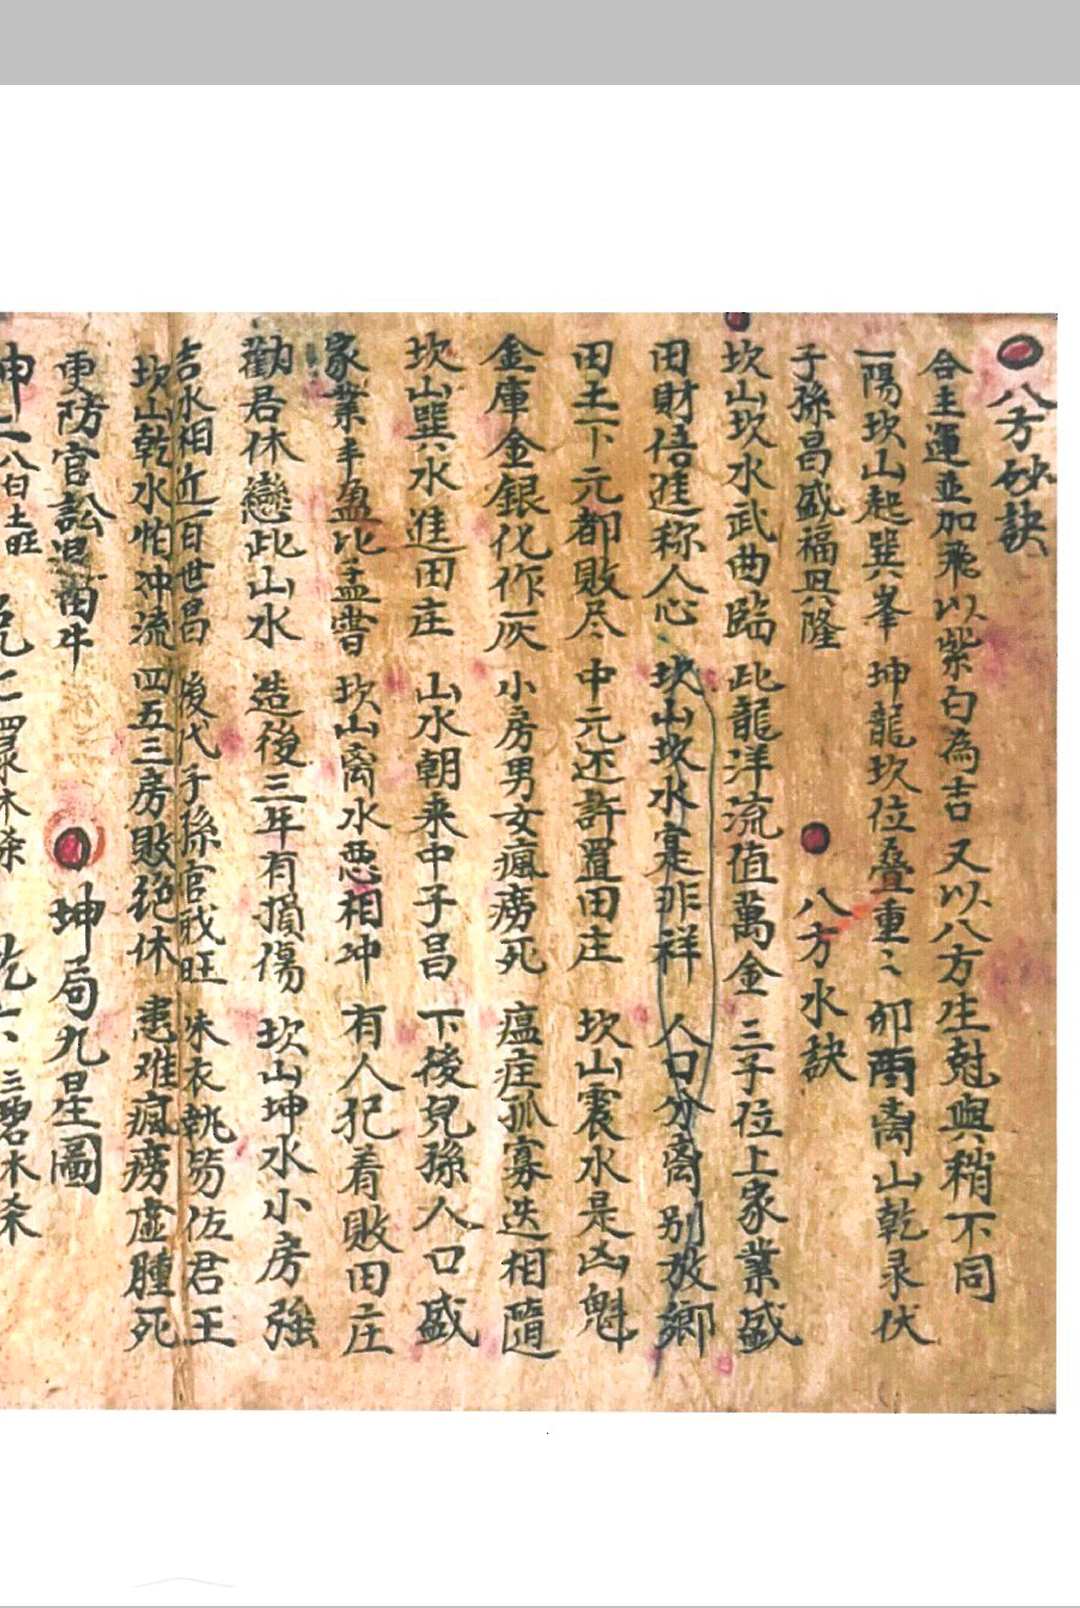 八方砂訣
合主運並加飛以紫白為吉 又以八方生尅與稍不同
一陽坎山起巽峯 坤龍坎位叠重〻 卯酉离山乾录伏
子孫昌盛福興隆 八方水訣
坎山坎水武曲臨 此龍洋流值萬金 三子位上家業盛
田財倍進称人心 坎山坎水寔非祥 人口分离别放鄉
田土下元都敗尽 中元还許置田庄 坎山震水是凶魁
金庫金銀化作灰 小房男女瘋癆死 瘟㾏孤寡迭相隨
坎山巽水進田庄 山水朝来中子昌 下後兒孫人口盛
家業丰盈比孟甞 坎山离水悪相冲 有人犯着敗田庄
勸君休戀此山水 造後三年有損傷 坎山坤水小房強
吉水相近百世昌 後代子孫官戝旺 朱衣執笏佐君王
坎山乾水怕冲流 四五三房敗絶休 患难瘋癆虚腫死
更防官訟退菑牛 坤局九星圖
坤二八白土旺 兑七四录木杀 乾六三碧木杀